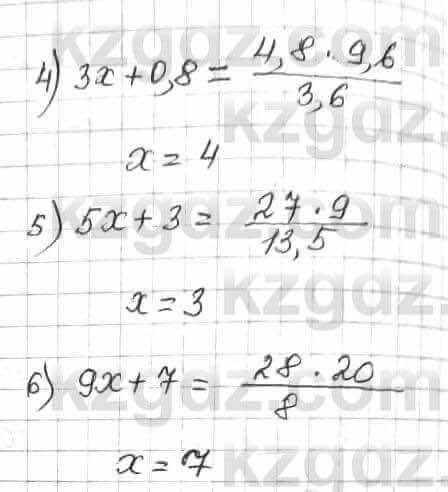 kzgdz.com
4) 3x + 0,8 = 4,8 · 9,6 / 3,6
kzgdz.
x = 4
kzgdz.com
5) 5x + 3 = 27 · 9 / 13,5
kzgdz.
x = 3
kzgdz.com
6) 9x + 7 = 28 · 20 / 8
kzgdz.
x = 7